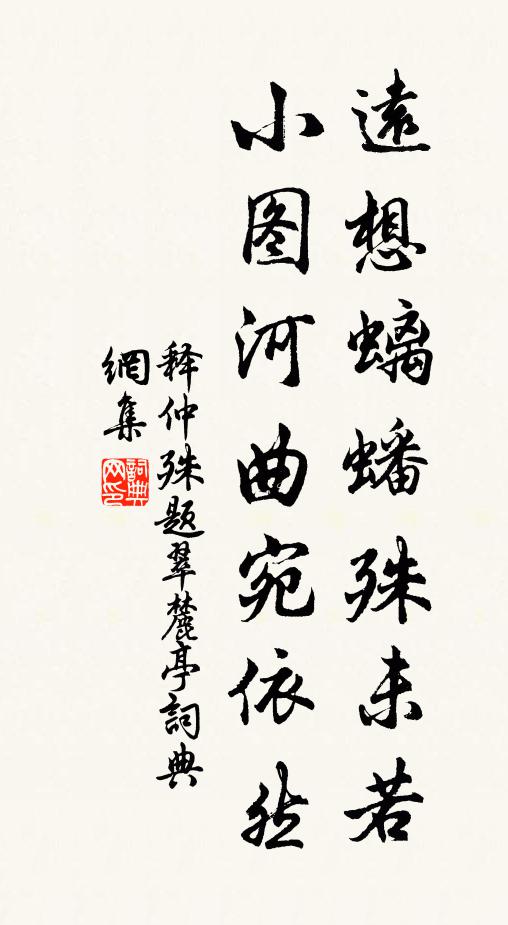 遠想螭蟠殊未若
小图河曲宛依然
释仲殊题翠麓亭詞典
網集
詞典網印